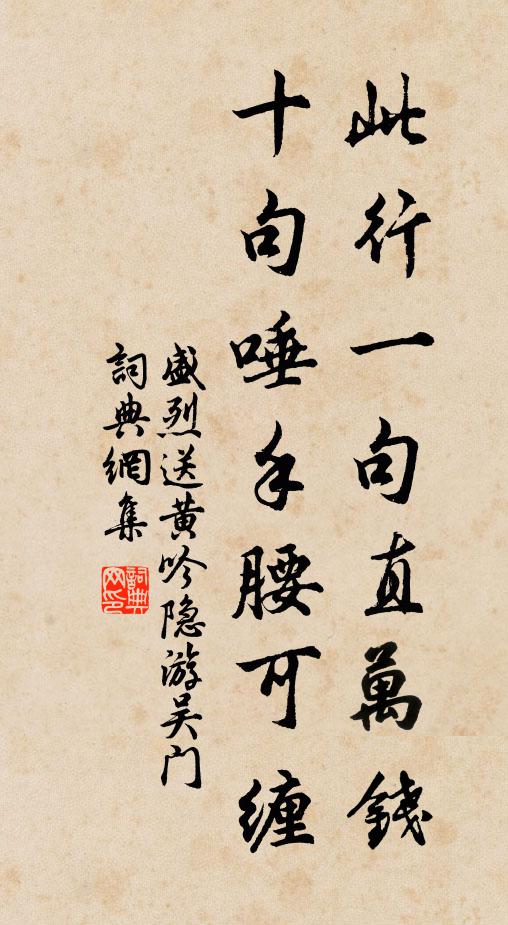 此行一句直萬錢
十句唾手腰可纏
盛烈送黄吟隐游吴门
詞典網集
詞典网印